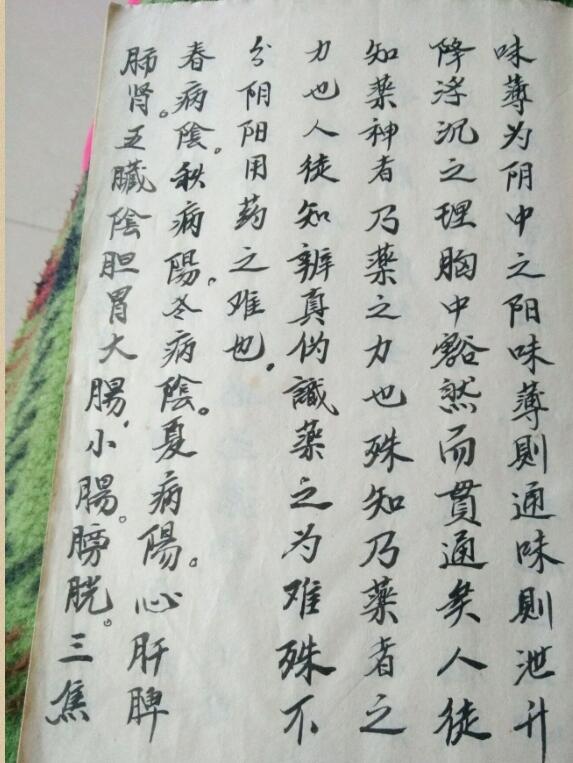 味薄为阴中之阳味薄則通味則泄升
降浮沉之理胸中豁然而貫通矣人徒
知薬神者乃薬之力也殊知乃薬者之
力也人徒知辨真伪識薬之为难殊不
分阴阳用药之难也。
春病陰。秋病陽。冬病陰。夏病陽。心肝脾
肺肾。五臟陰胆胃大腸，小腸。膀胱。三焦